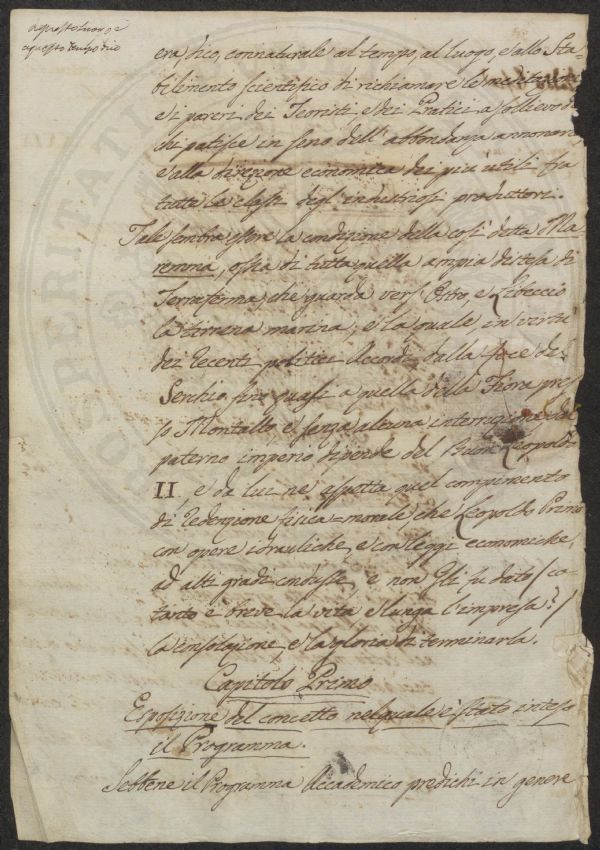 a questo luogo, e
a questo tempo dico
era, dico, connaturale al tempo, al luogo, e allo Sta-
bilimento scientifico di richiamare le meditazioni
e i pareri dei Teoristi, e dei Pratici a sollievo di
chi patisce in seno dell'abbondanza annonaria,
e alla direzione economica dei più utili fra
tutte la classi degl'industriosi produttori.
Tale sembra essere la condizione della così detta Ma-
remma, ossia di tutta quella ampia distesa di
Terraferma, che guarda verso Ostro, e Libeccio
la tirrena marina; e la quale in virtù
dei recenti politici accordi dalla foce di
Serchio fin quasi a quella della Fiora pres-
so Montalto, e senza alcuna interruzione dal
paterno imperio dipende del Buon Leopoldo
II, e da lui ne aspetta quel compimento
di redenzione fisica-morale che Leopoldo Primo
con opere idrauliche, e con leggi economiche,
ad alti gradi condusse, e non gli fu dato (co-
tanto è breve la vita e lunga l'impresa!)
la consolazione, e la gloria di terminarla.
Capitolo Primo
Esposizione del concetto nel quale è stato inteso
il Programma.
Sebbene il Programma Accademico predichi in genere